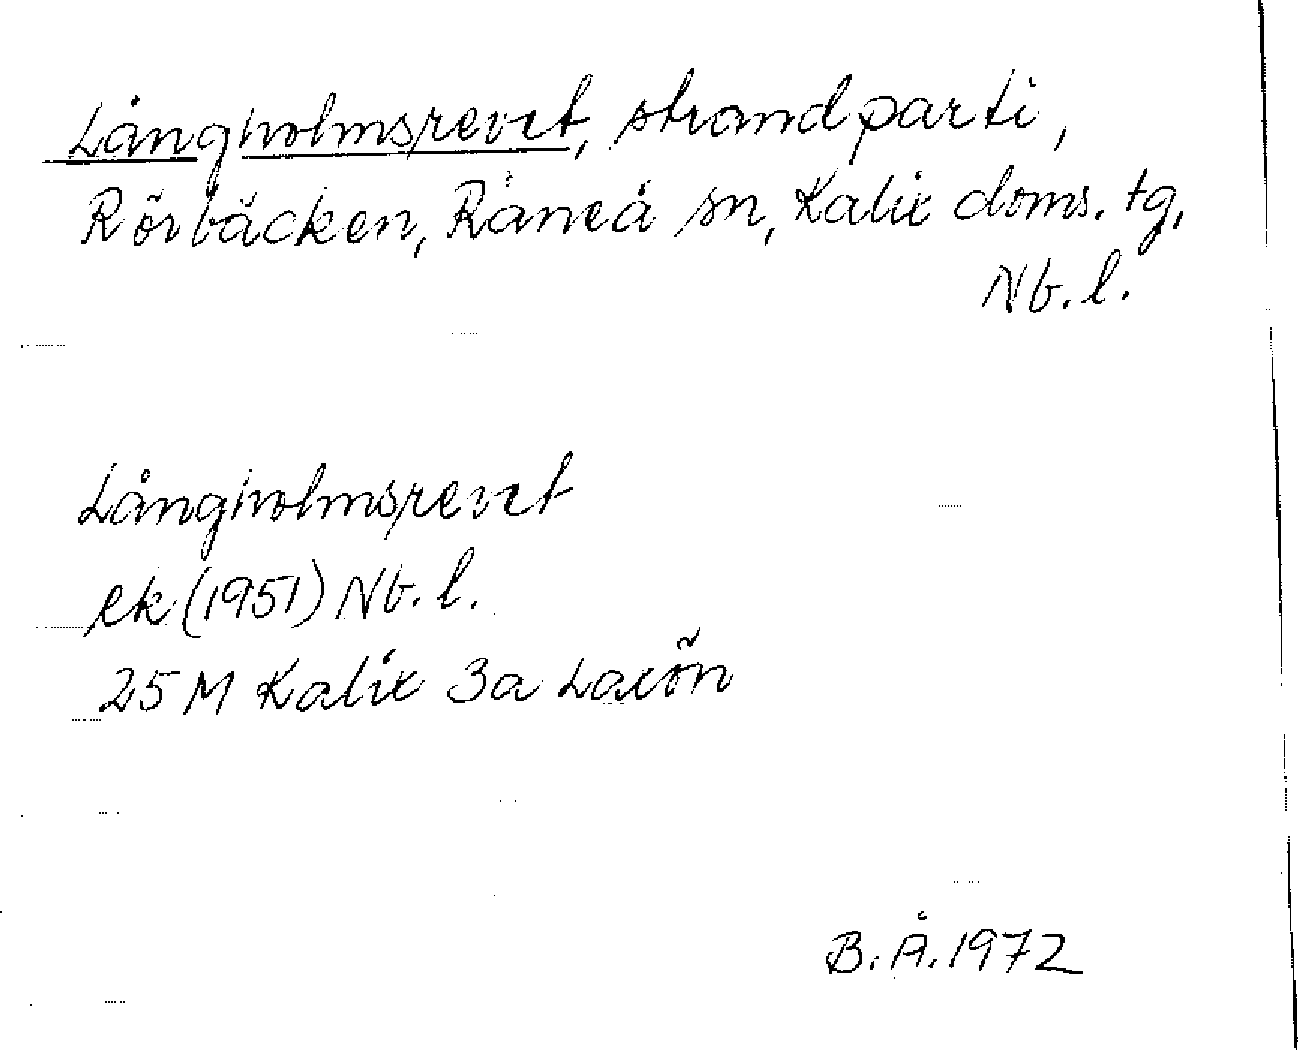 Långholmsrevet, strandparti,
Rörbäcken, Råneå sn, Kalix doms. tg,
Nb. l.
Långholmsrevet
ek (1951) Nb. l.
25 M Kalix 3a Laxön
B. Å. 1972